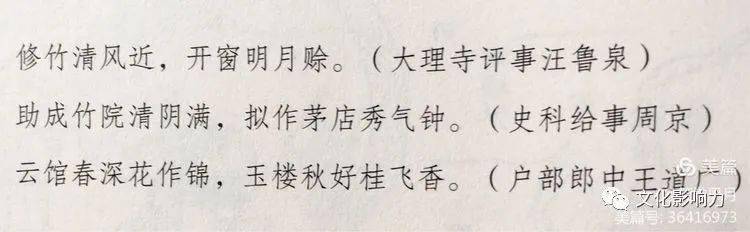 修竹清风近，开窗明月赊。（大理寺评事汪鲁泉）
助成竹院清阴满，拟作茅店秀气钟。（史科给事周京）
云馆春深花作锦，玉楼秋好桂飞香。（户部郎中王道广）
美篇
文化影响力
美篇号：36416973